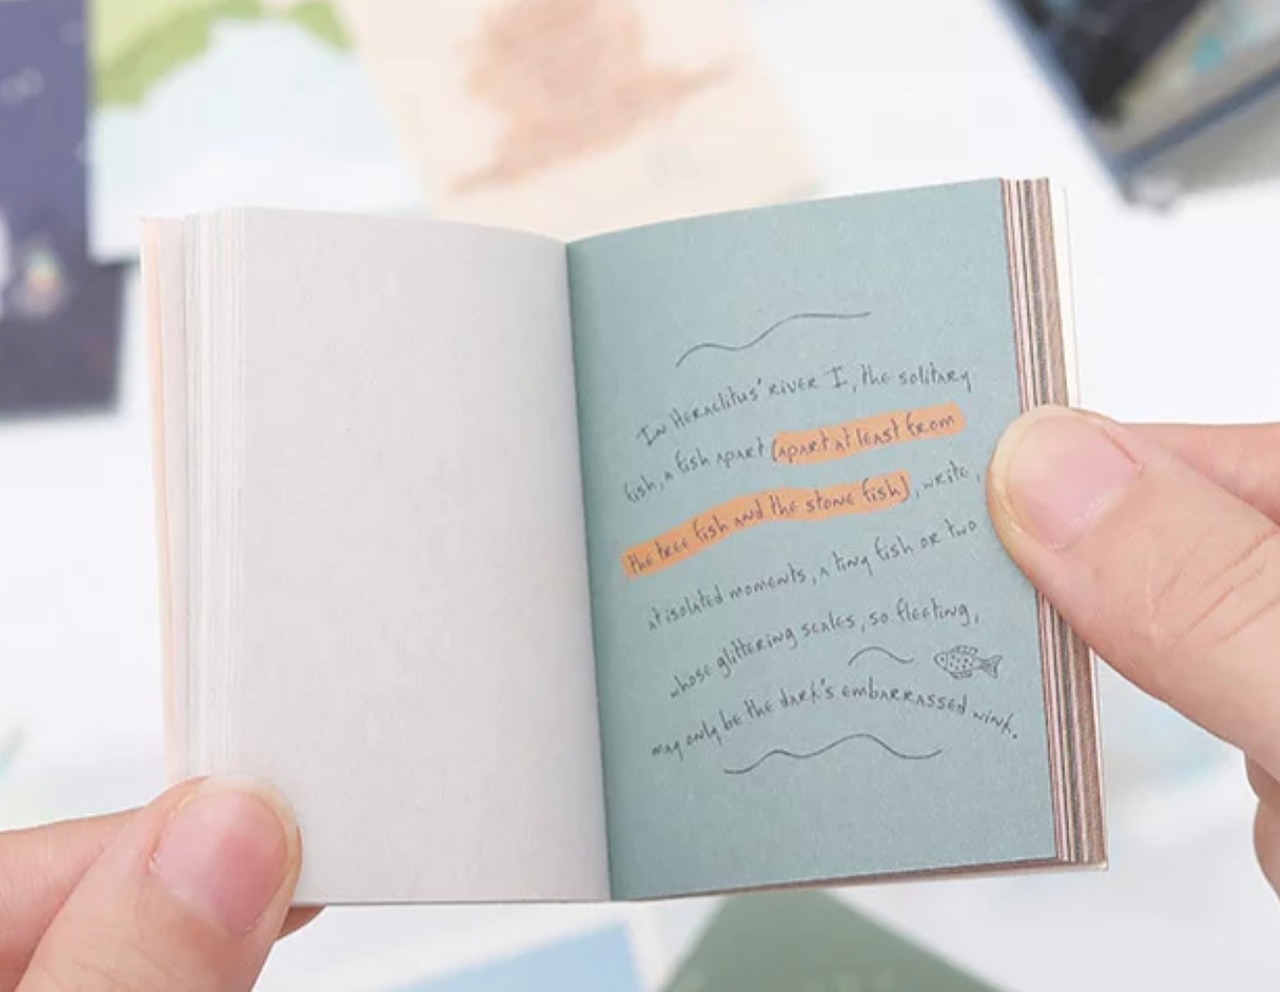 In Heraclitus' river I, the solitary
fish, a fish apart (apart at least from
the tree fish and the stone fish), write,
at isolated moments, a tiny fish or two
whose glittering scales, so fleeting,
may only be the dark's embarrassed wink.